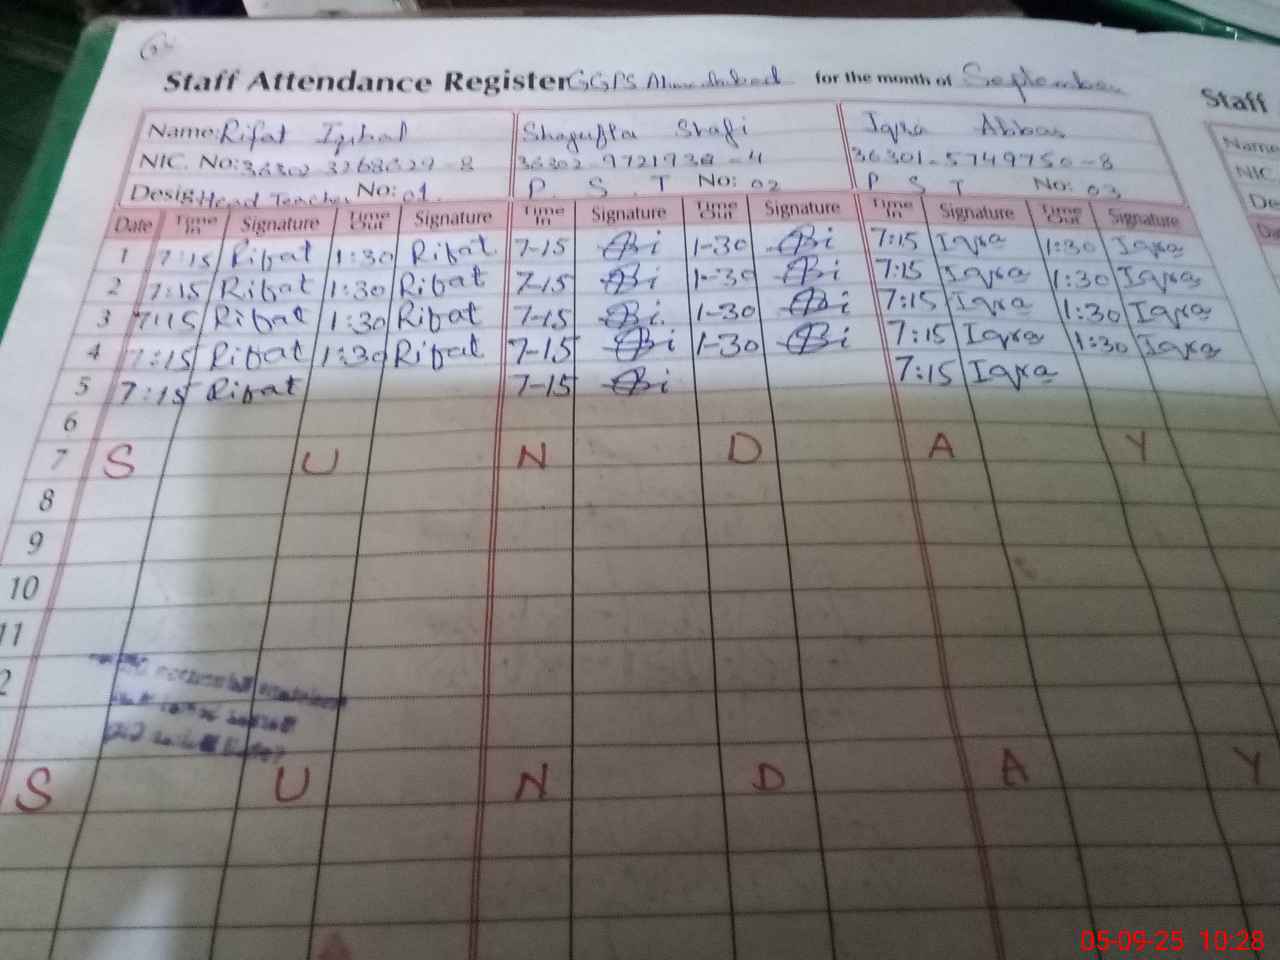 Staff Attendance Register GGPS Ahmadabad for the month of September
Staff
Name: Rifat Iqbal Shagufta Shafi Iqra Abbas
Name
NIC. No: 36302-3268629-8 36302-9721938-4 36301-5749750-8
NIC.
Desig: Head Teacher No: 01. P. S. T No: 02 P S T No: 03
De
Date Time In Signature Time Out Signature Time In Signature Time Out Signature Time In Signature Time Out Signature
1 7:15 Rifat 1:30 Rifat 7-15 1-30 7:15 Iqra 1:30 Iqra
2 7:15 Rifat 1:30 Rifat 7-15 1-30 7:15 Iqra 1:30 Iqra
3 7:15 Rifat 1:30 Rifat 7-15 1-30 7:15 Iqra 1:30 Iqra
4 7:15 Rifat 1:30 Rifat 7-15 1-30 7:15 Iqra 1:30 Iqra
5 7:15 Rifat 7-15 7:15 Iqra
6
7 S U N D A Y
8
9
10
11
2
S U N D A Y
05-09-25 10:28